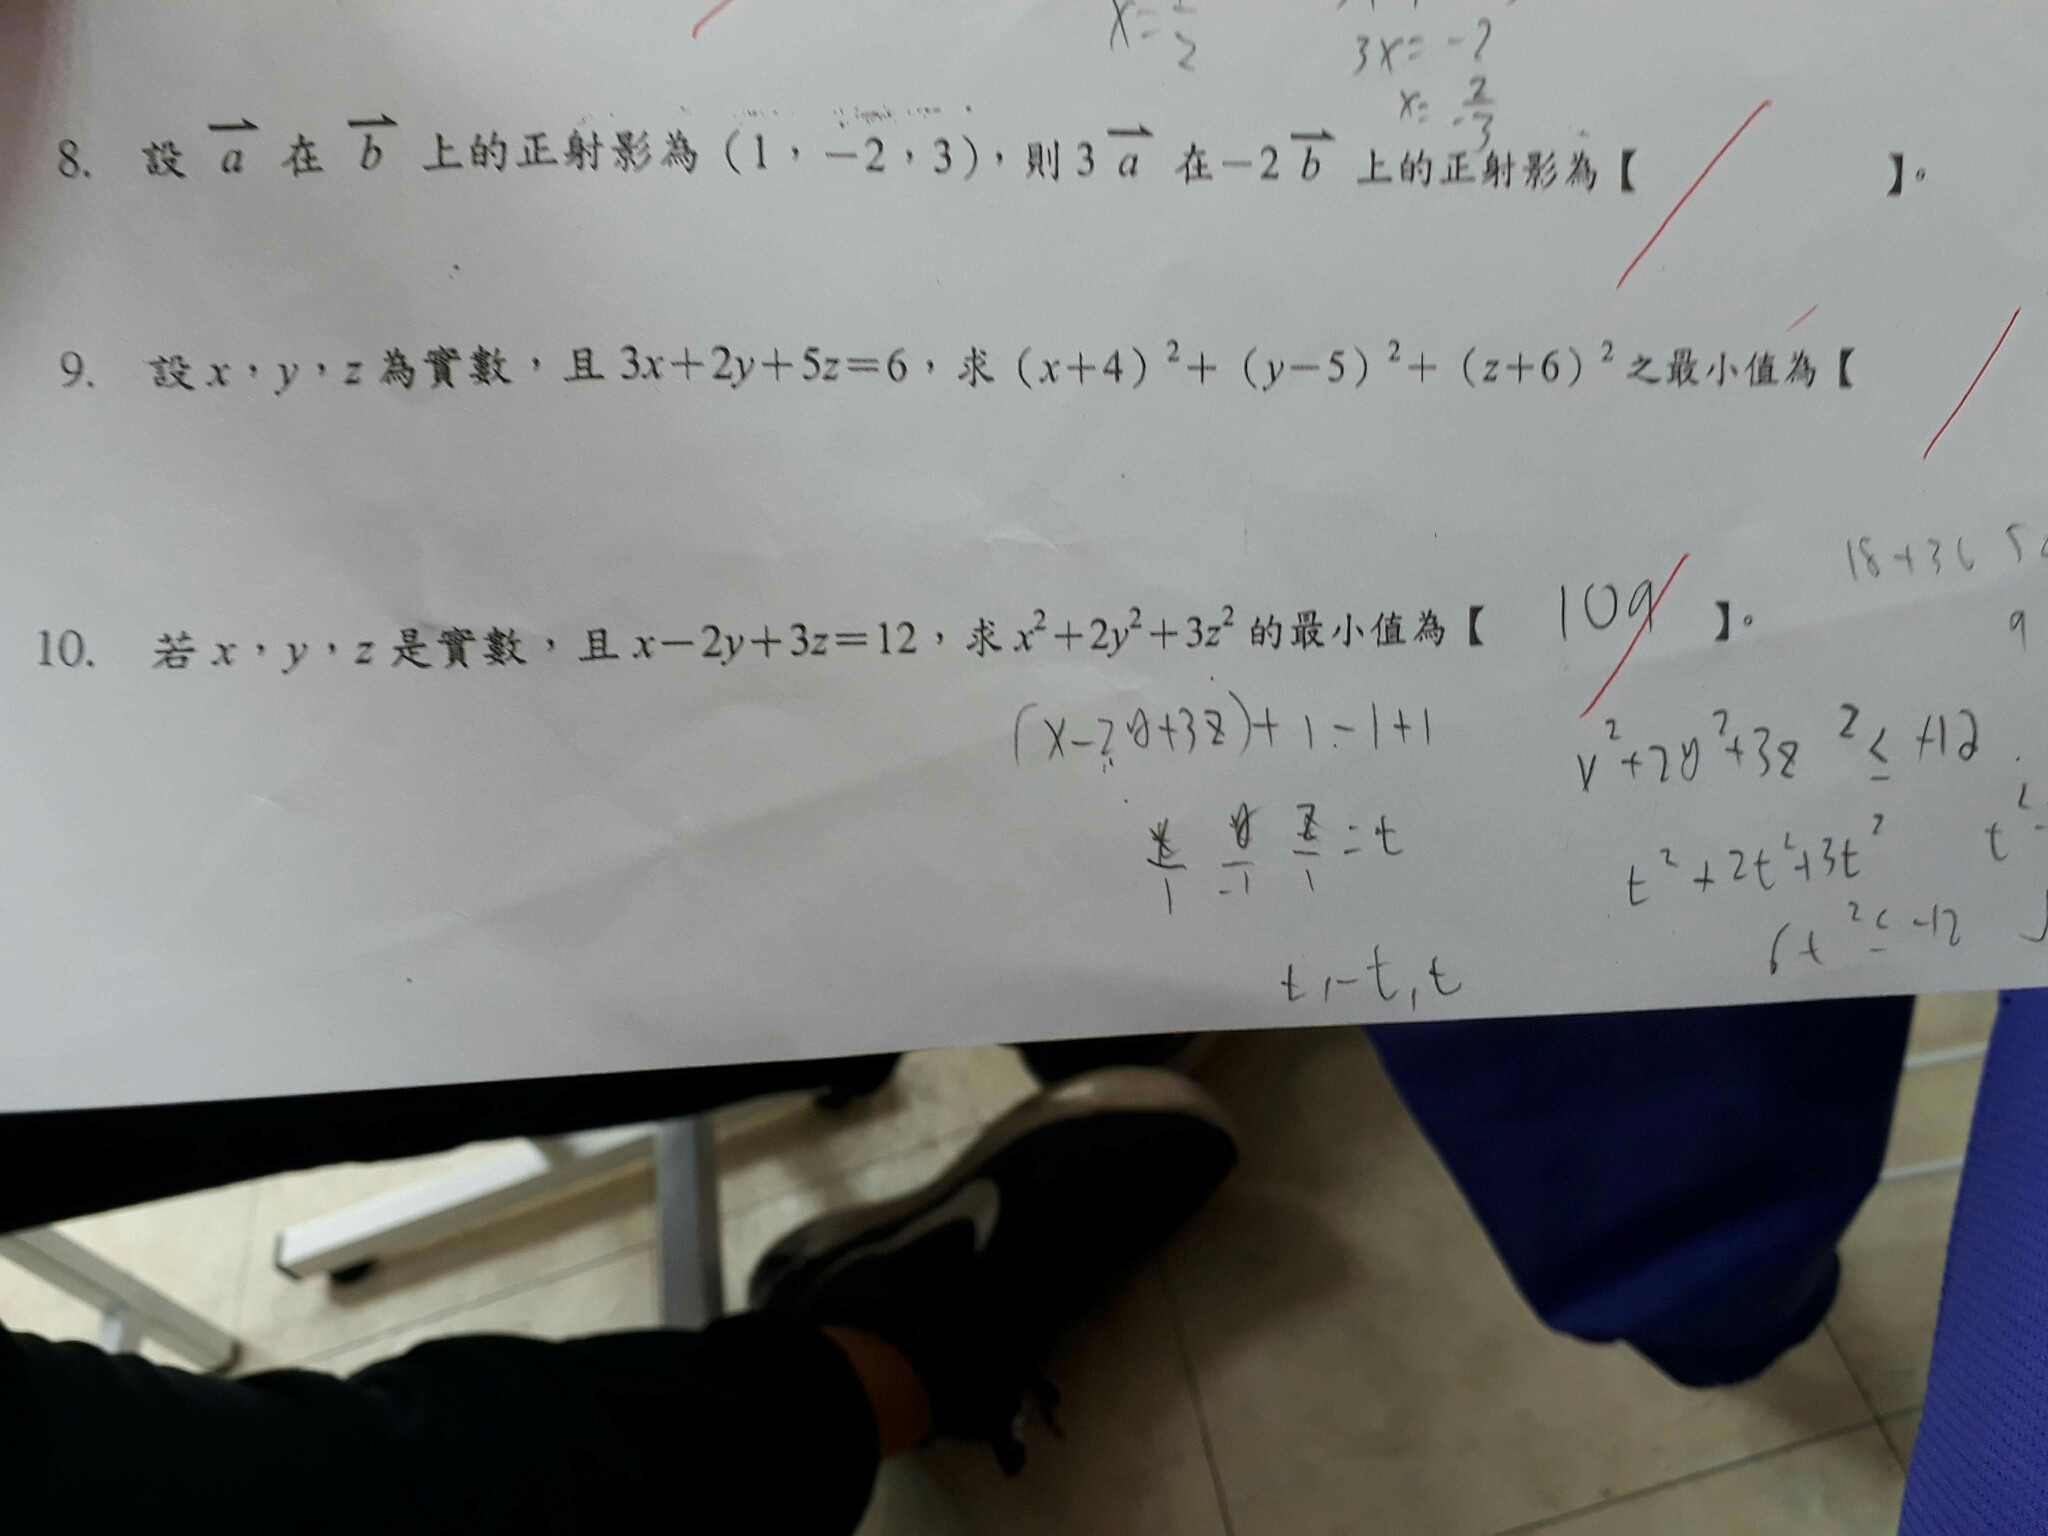 3x=-2
8. 設 a 在 b 上的正射影為(1,-2,3),則 3 a 在-2 b 上的正射影為【 】。
9. 設 x,y,z 為實數,且 3x+2y+5z=6,求(x+4)²+(y-5)²+(z+6)²之最小值為【
18+36
10. 若 x,y,z 是實數,且 x-2y+3z=12,求 x²+2y²+3z² 的最小值為【 109 】。
9
(x-2y+3z)+1-1+1
x²+2y²+3z² ≤ +12
x/1 y/-1 z/1 =t
t²+2t²+3t²
6t² ≤ -12
t,-t,t